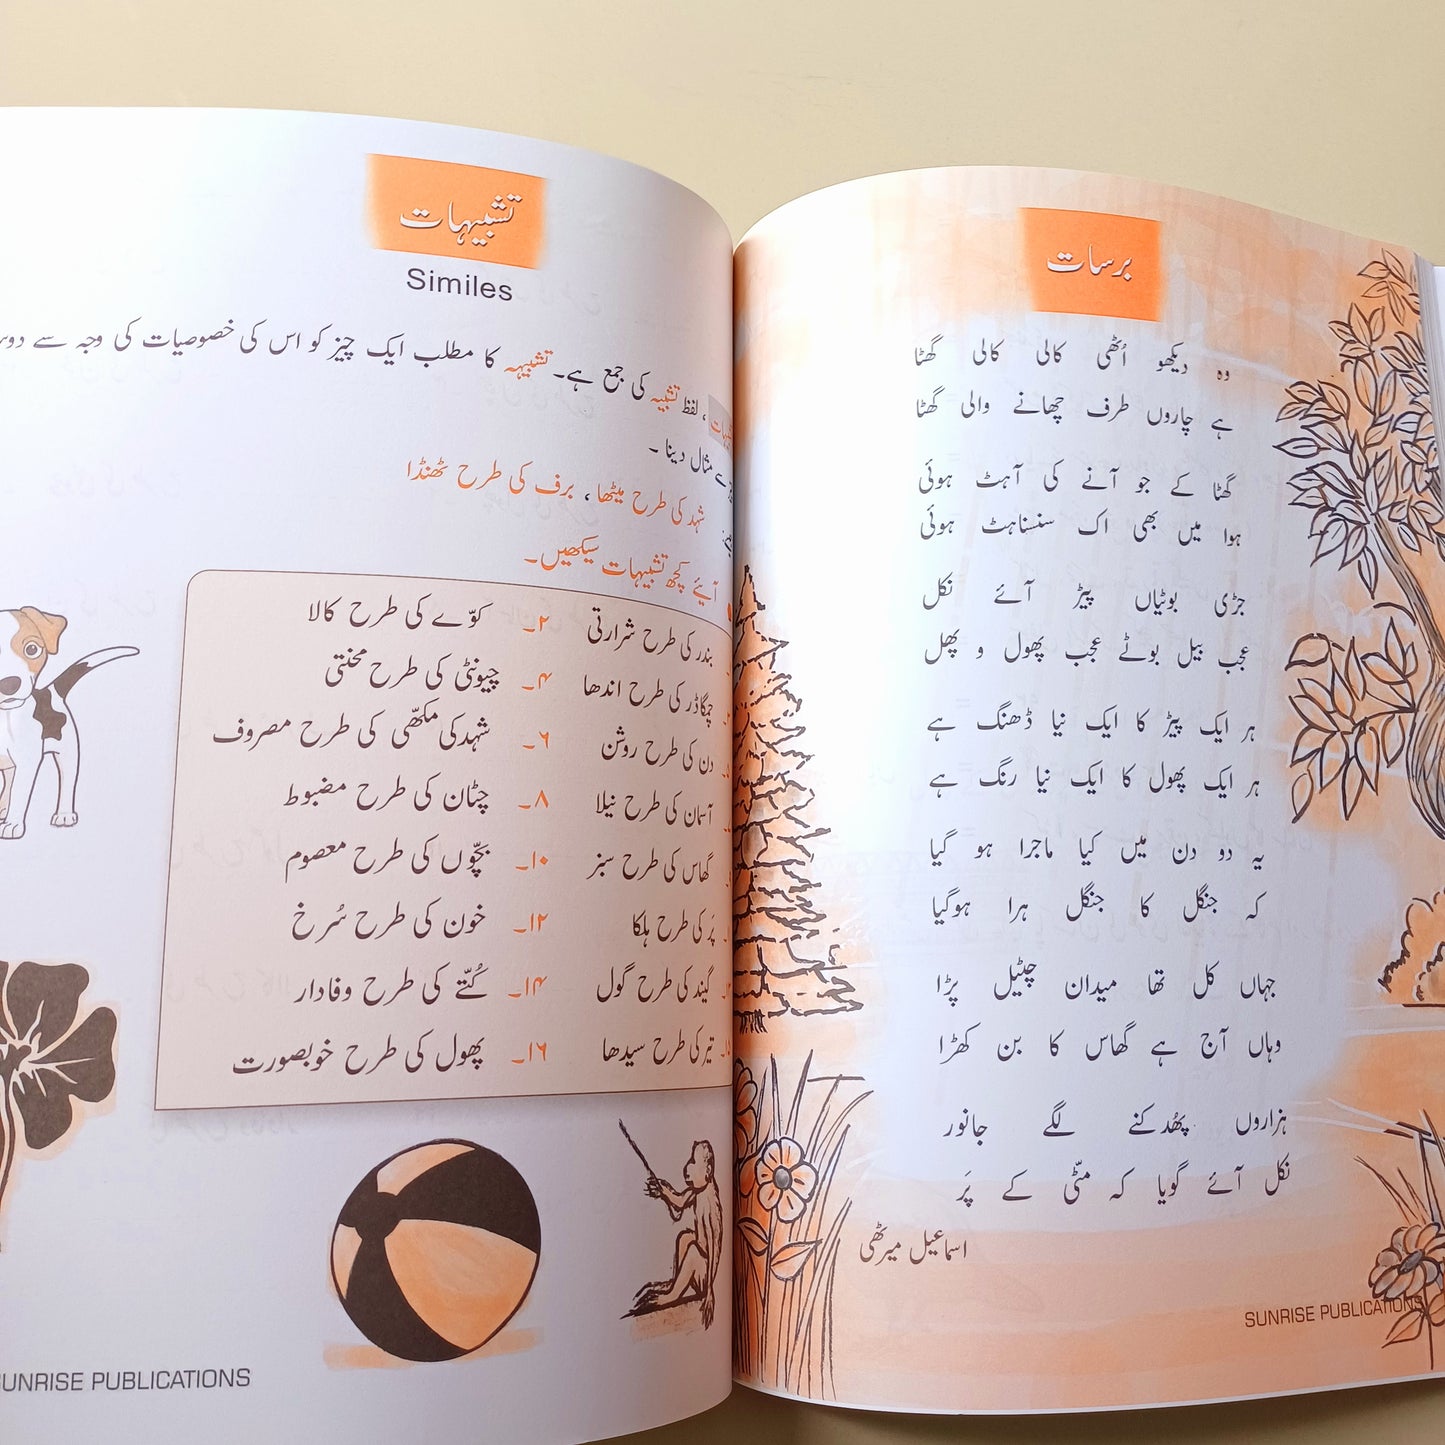 تشبیہات
Similes
، لفظ تشبیہ کی جمع ہے۔ تشبیہہ کا مطلب ایک چیز کو اس کی خصوصیات کی وجہ سے
سے مثال دینا ۔
شہد کی طرح میٹھا ، برف کی طرح ٹھنڈا
آیئے کچھ تشبیہات سیکھیں۔
بندر کی طرح شرارتی ۲۔ کوّے کی طرح کالا
چمگاڈر کی طرح اندھا ۴۔ چیونٹی کی طرح محنتی
دن کی طرح روشن ۶۔ شہد کی مکھّی کی طرح مصروف
آسمان کی طرح نیلا ۸۔ چٹان کی طرح مضبوط
گھاس کی طرح سبز ۱۰۔ بچّوں کی طرح معصوم
پَر کی طرح ہلکا ۱۲۔ خون کی طرح سُرخ
گیند کی طرح گول ۱۴۔ کُتّے کی طرح وفادار
تیر کی طرح سیدھا ۱۶۔ پھول کی طرح خوبصورت
SUNRISE PUBLICATIONS
برسات
وہ دیکھو اُٹھی کالی کالی گھٹا
ہے چاروں طرف چھانے والی گھٹا
گھٹا کے جو آنے کی آہٹ ہوئی
ہوا میں بھی اک سنسناہٹ ہوئی
جڑی بوٹیاں پیڑ آئے نکل
عجب بیل بوٹے عجب پھول و پھل
ہر ایک پیڑ کا ایک نیا ڈھنگ ہے
ہر ایک پھول کا ایک نیا رنگ ہے
یہ دو دن میں کیا ماجرا ہو گیا
کہ جنگل کا جنگل ہرا ہوگیا
جہاں کل تھا میدان چٹیل پڑا
وہاں آج ہے گھاس کا بن کھڑا
ہزاروں پھُدکنے لگے جانور
نکل آئے گویا کہ مٹّی کے پَر
اسماعیل میرٹھی
SUNRISE PUBLICATIONS